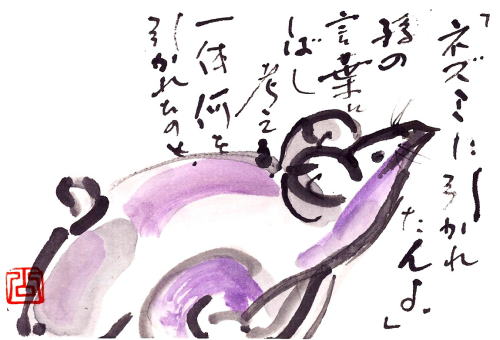 「ネズミに引かれ
たんよ。」
孫の
言葉に
しばし
考える
一体何を
引かれたのせ